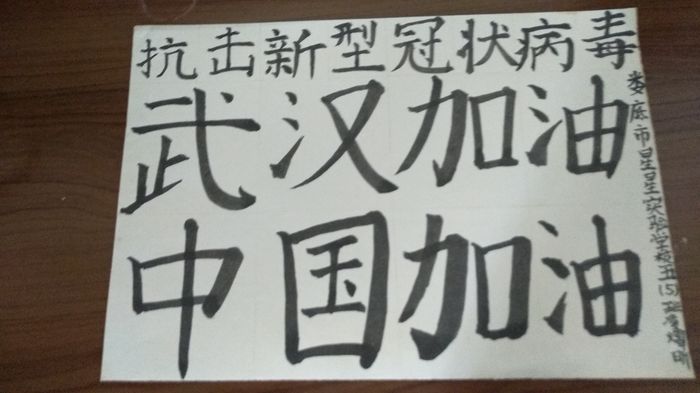 抗击新型冠状病毒
武汉加油
中国加油
娄底市星星实验学校五(5)班